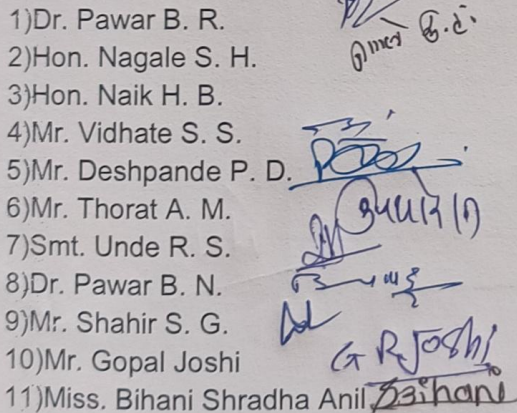 1)Dr. Pawar B. R.
2)Hon. Nagale S. H.
3)Hon. Naik H. B.
4)Mr. Vidhate S. S.
5)Mr. Deshpande P. D.
6)Mr. Thorat A. M.
7)Smt. Unde R. S.
8)Dr. Pawar B. N.
9)Mr. Shahir S. G.
10)Mr. Gopal Joshi G R Joshi
11)Miss. Bihani Shradha Anil SBihani